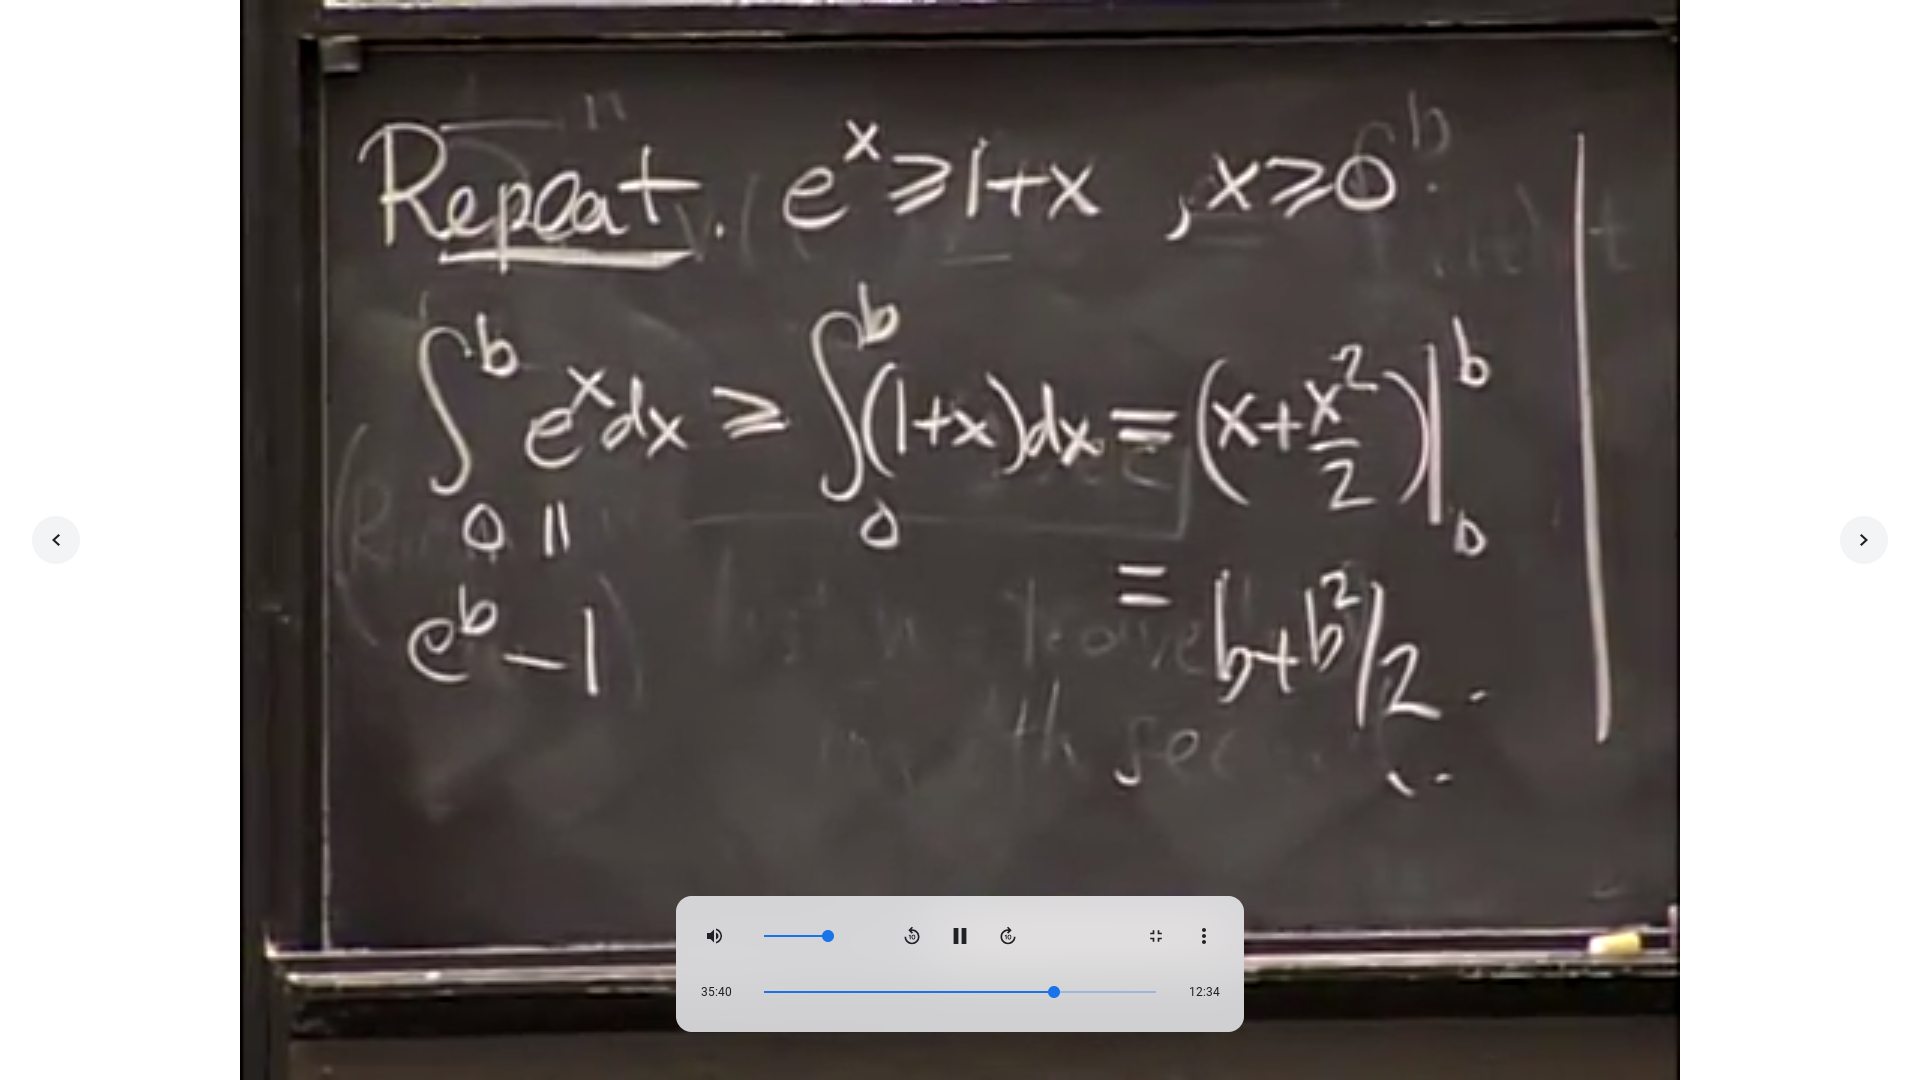 Repeat. e^x ≥ 1+x , x ≥ 0
∫_0^b e^x dx ≥ ∫_0^b (1+x)dx = (x + x^2/2)|_0^b
||
e^b - 1
= b + b^2/2
35:40
12:34